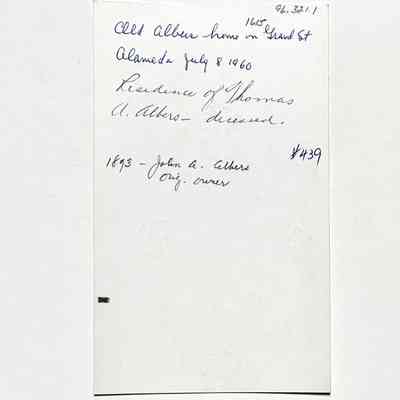 96.321.1
1615
Old Albers home on Grand St
Alameda July 8 1960
Residence of Thomas
A. Albers - deceased.
#439
1893 - John A. Albers
Orig. owner